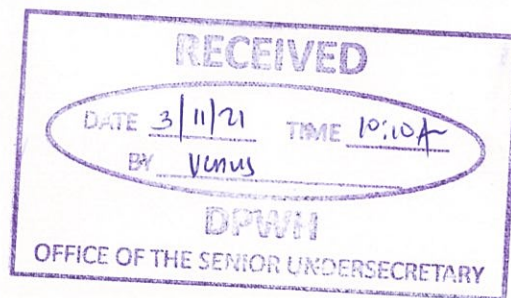 RECEIVED
DATE 3/11/21 TIME 10:10 A
BY Venus
DPWH
OFFICE OF THE SENIOR UNDERSECRETARY